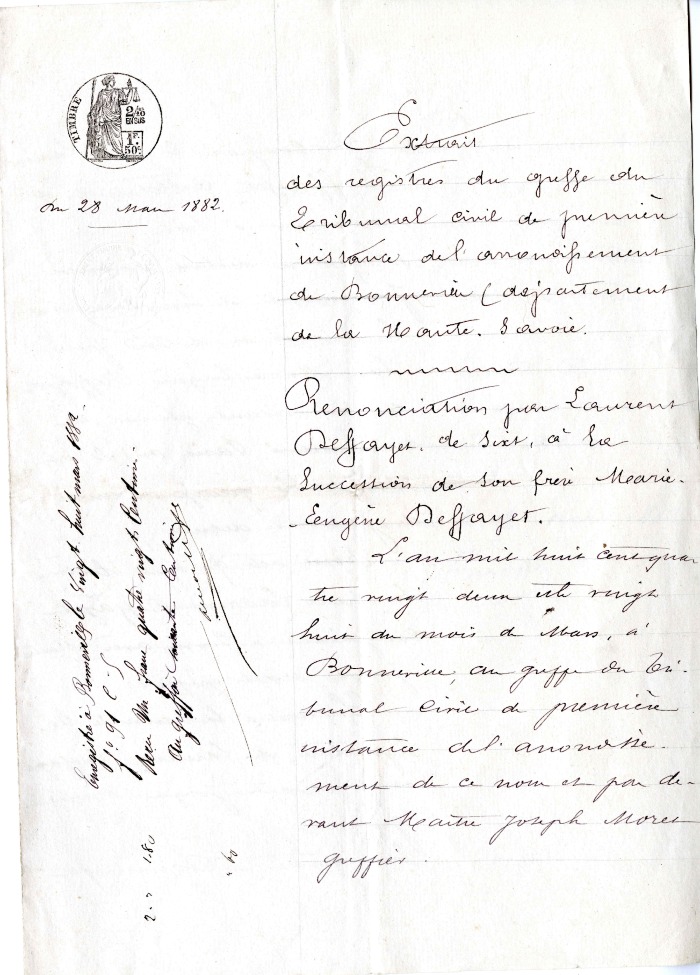 TIMBRE
2/10
EN SUS
1F.
50c.
Du 28 Mars 1882.
Extrait
des registres du greffe du
Tribunal civil de première
instance de l'arrondissement
de Bonneville (département
de la Haute-Savoie.
Renonciation par Laurent
Deffayet, de Sixt, à la
succession de son frère Marie-
-Eugène Deffayet.
L'an mil huit cent qua
tre vingt deux et le vingt
huit du mois de Mars, à
Bonneville, au greffe du Tri-
bunal Civil de première
instance de l'arrondisse-
ment de ce nom et par de-
vant Maître Joseph Moret
greffier.
Enregistré à Bonneville le Vingt huit mars 1882
fo 91 c. 5
Reçu un franc quatre vingt centimes.
Au greffier soixante centimes
2.- 1.80
" 60